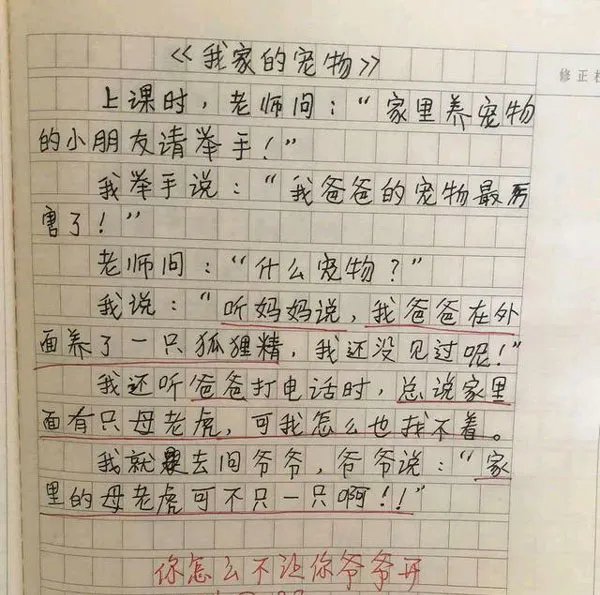 《我家的宠物》
修正栏
上课时，老师问：“家里养宠物
的小朋友请举手！”
我举手说：“我爸爸的宠物最厉
害了！”
老师问：“什么宠物？”
我说：“听妈妈说，我爸爸在外
面养了一只狐狸精，我还没见过呢！”
我还听爸爸打电话时，总说家里
面有只母老虎，可我怎么也找不着。
我就去问爷爷，爷爷说：“家
里的母老虎可不只一只啊！！”
你怎么不让你爷爷开